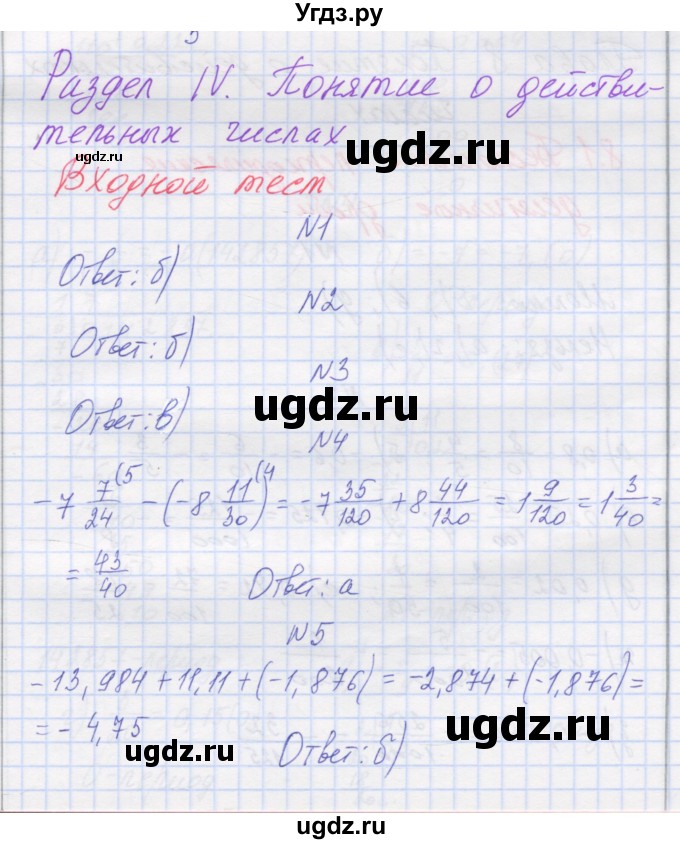 Угдз.ру
Раздел IV. Понятие о действи-
тельных числах
www.ugdz.ru
ugdz.ru
Входной тест
N1
Ответ: б)
N2
ugdz.ru
Ответ: б)
N3
ugdz.ru
Ответ: в)
ugdz.ru
N4
-7 7/24 (5 - (-8 11/30)(4 = -7 35/120 + 8 44/120 = 1 9/120 = 1 3/40 =
= 43/40
Ответ: а
N5
-13,984 + 11,11 + (-1,876) = -2,874 + (-1,876) =
= - 4,75
ugdz.ru
www.ugdz.ru
Ответ: б)
ugdz.ru
ugdz.ru